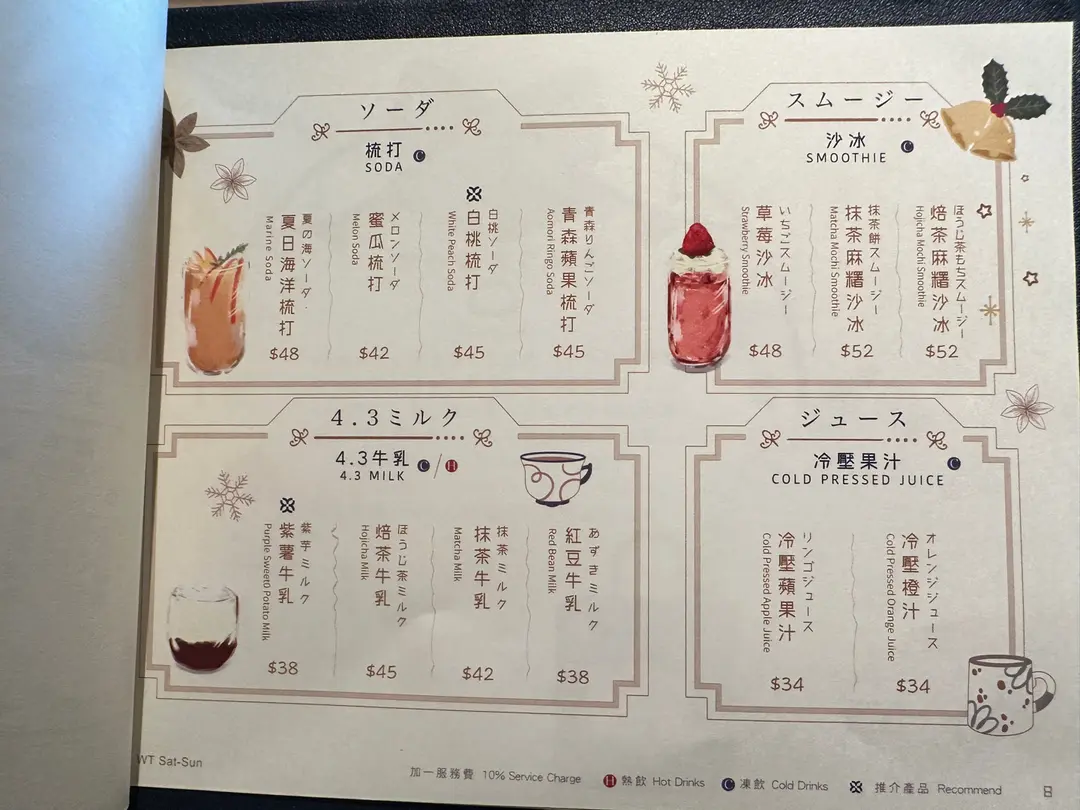 ソーダ
梳打
SODA
夏の海ソーダ
夏日海洋梳打
Marine Soda
$48
メロンソーダ
蜜瓜梳打
Melon Soda
$42
白桃ソーダ
白桃梳打
White Peach Soda
$45
青森りんごソーダ
青森蘋果梳打
Aomori Ringo Soda
$45
スムージー
沙冰
SMOOTHIE
いちごスムージー
草莓沙冰
Strawberry Smoothie
$48
抹茶餅スムージー
抹茶麻糬沙冰
Matcha Mochi Smoothie
$52
ほうじ茶もちスムージー
焙茶麻糬沙冰
Hojicha Mochi Smoothie
$52
4.3ミルク
4.3牛乳
4.3 MILK
C / H
紫芋ミルク
紫薯牛乳
Purple Sweet0 Potato Milk
$38
ほうじ茶ミルク
焙茶牛乳
Hojicha Milk
$45
抹茶ミルク
抹茶牛乳
Matcha Milk
$42
あずきミルク
紅豆牛乳
Red Bean Milk
$38
ジュース
冷壓果汁
COLD PRESSED JUICE
リンゴジュース
冷壓蘋果汁
Cold Pressed Apple Juice
$34
オレンジジュース
冷壓橙汁
Cold Pressed Orange Juice
$34
WT Sat-Sun
加一服務費 10% Service Charge
H 熱飲 Hot Drinks
C 凍飲 Cold Drinks
推介產品 Recommend
8